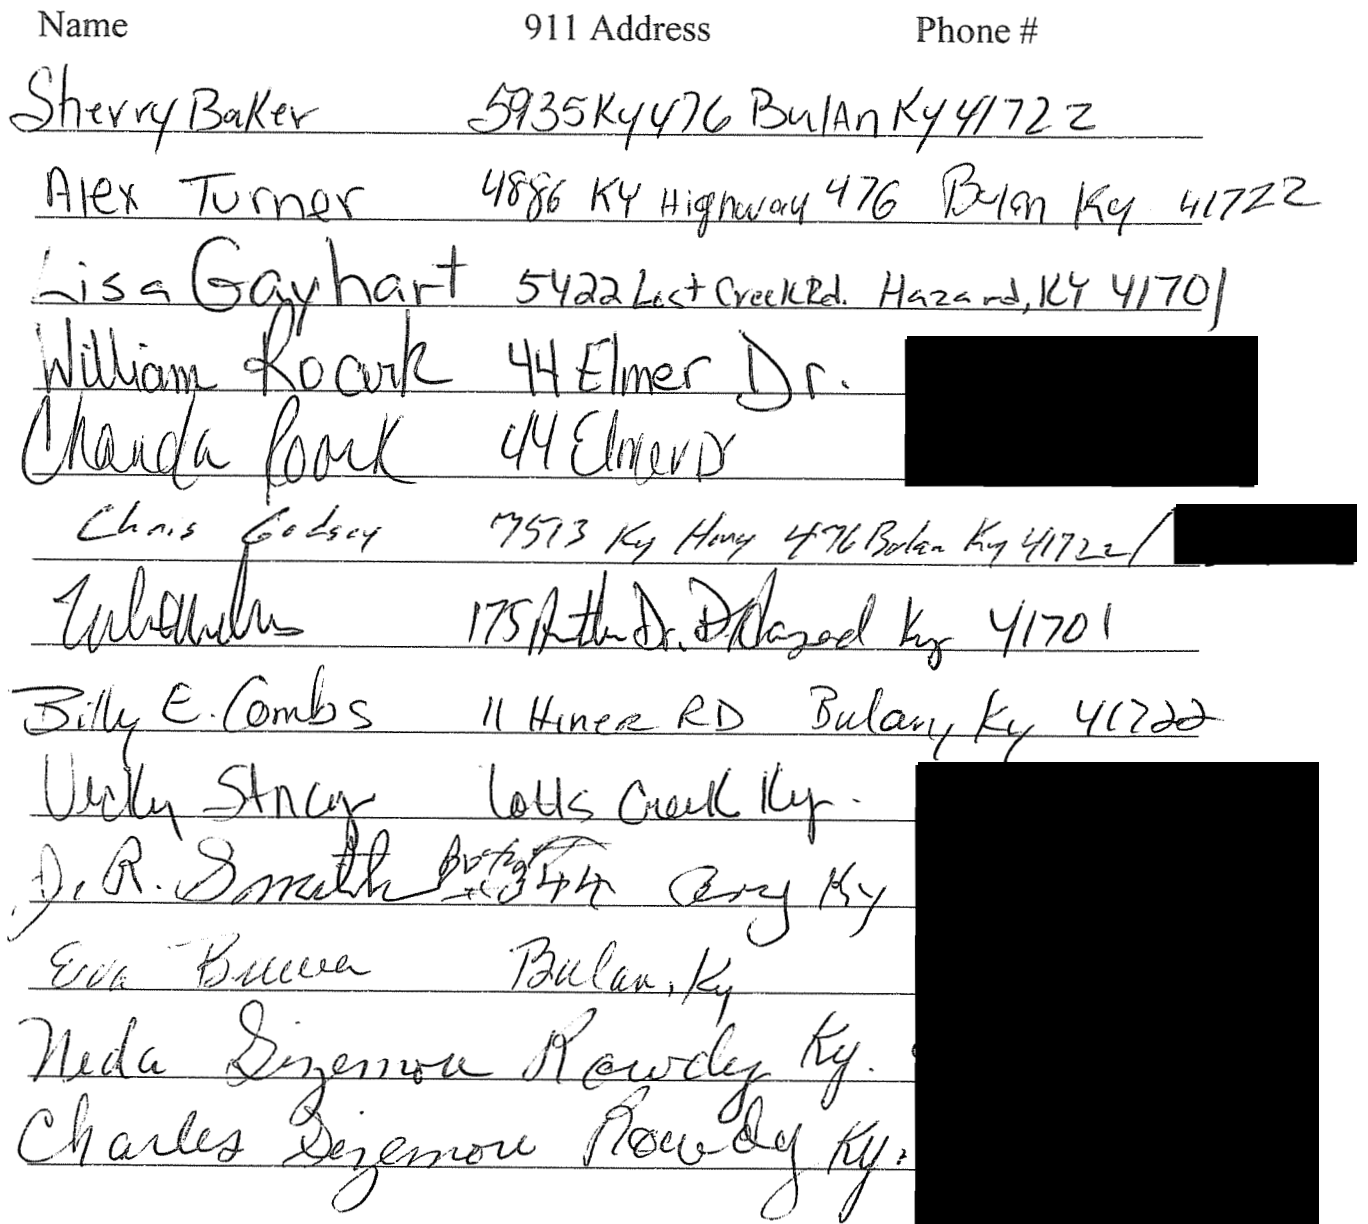 Name 911 Address Phone #
Sherry Baker 5935 Ky 476 Bulan Ky 41722
Alex Turner 4886 KY Highway 476 Bulan Ky 41722
Lisa Gayhart 5422 Lost Creek Rd. Hazard, KY 41701
William Roark 44 Elmer Dr.
Chanda Roark 44 Elmer Dr
Chris Godsey 7513 Ky Hwy 476 Bulan Ky 41722 /
175 Dr. Hazard Ky 41701
Billy E. Combs 11 Hiner RD Bulan, Ky 41722
Vicky Stacy Lotts Creek Ky.
D. R. Smith 344 Ary Ky
Eva Bulan, Ky
Neda Sizemore Rowdy Ky.
Charles Sizemore Rowdy Ky.